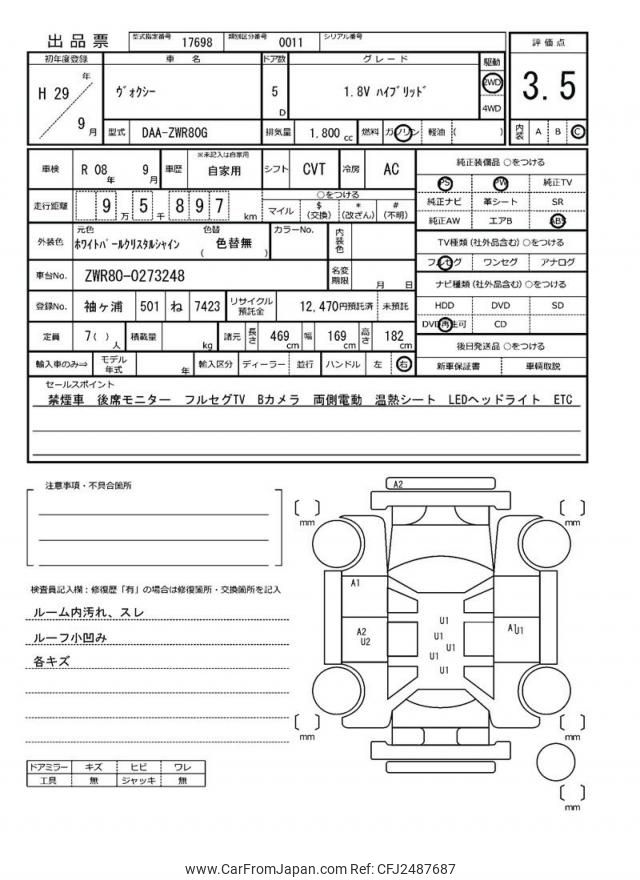 出品票
型式指定番号 17698 類別区分番号 0011 シリアル番号
評価点
3.5
内装 A B C
初年度登録 車名 ドア数 グレード 駆動
H 29 年 9 月
ヴォクシー 5 D 1.8V ハイブリッド 2WD 4WD
型式 DAA-ZWR80G 排気量 1.800 cc 燃料 ガソリン 軽油 ( )
車検 R 08 年 9 月 車歴 ※未記入は自家用 自家用 シフト CVT 冷房 AC
走行距離 9 万 5 千 8 9 7 km
○をつける
マイル $(交換) *(改ざん) #(不明)
外装色 元色 ホワイトパールクリスタルシャイン 色替 ( 色替無 ) カラーNo. 内装色
車台No. ZWR80-0273248 名変期限 月 日
登録No. 袖ヶ浦 501 ね 7423 リサイクル預託金 12,470円預託済 未預託
定員 7( )人 積載量 kg 諸元 長さ 469 cm 幅 169 cm 高さ 182 cm
輸入車のみ⇒ モデル年式 年 輸入区分 ディーラー 並行 ハンドル 左 右
純正装備品 ○をつける
PS PW 純正TV
純正ナビ 革シート SR
純正AW エアB ABS
TV種類(社外品含む)○をつける
フルセグ ワンセグ アナログ
ナビ種類(社外品含む)○をつける
HDD DVD SD
DVD再生可 CD
後日発送品 ○をつける
新車保証書 車輌取説
セールスポイント
禁煙車 後席モニター フルセグTV Bカメラ 両側電動 温熱シート LEDヘッドライト ETC
注意事項・不具合箇所
検査員記入欄:修復歴「有」の場合は修復箇所・交換箇所を記入
ルーム内汚れ、スレ
ルーフ小凹み
各キズ
ドアミラー キズ ヒビ ワレ
工具 無 ジャッキ 無
A2
mm mm
A1
U1
A2 U2
U1
U1
U1
U1
U1
A1 U1
mm mm
mm
www.CarFromJapan.com Ref: CFJ2487687